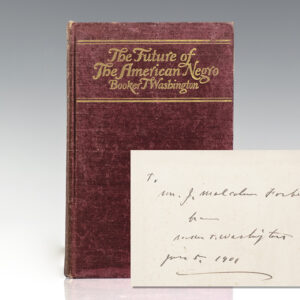 The Future of
The American Negro
Booker T Washington
To
Mr. J. Malcolm Forbes
from
Washington
1901